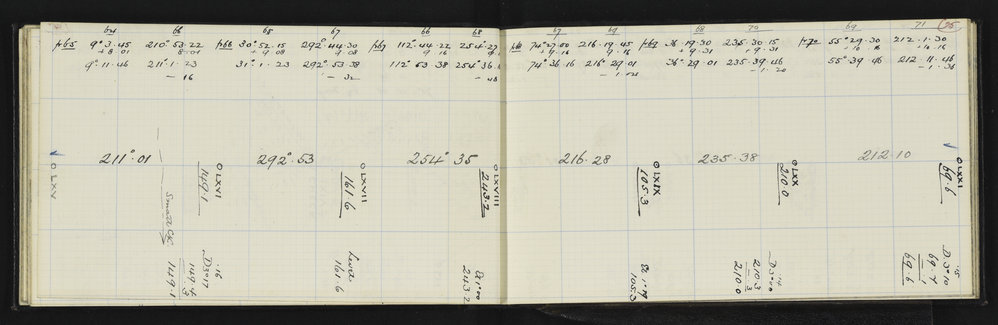 64 66 65 67 66 68 67 69 68 70 69 71 75
p65 9° 3.45 210° 53.22 p66 30° 52.15 292° 44.30 p67 112° 44.22 254° 27
+ 8.01 8.01 + 9.08 9.08 9.16
9° 11.46 211° 1.23 31° 1.23 292° 53.38 112° 53.38 254° 36
- 16 - 32 - 48
74° 27.00 216.19.45 p69 36° 19.30 235.30.15 p70 55° 29.30 212.1.30
+ 9.16 9.16 + 9.31 + 9.31 + 10.16 + 10.16
74° 36.16 216° 29.01 36° 29.01 235.39.46 55° 39.46 212.11.46
- 1.20 - 1.36
211°.01 292°.53 254° 35 216.28 235.38 212.10
⊙ LXV
Small Ck.
149.1
⊙ LXVI
149.1
.16
D 3°17
149.4
.3
149.1
⊙ LXVII
161.6
Level
161.6
⊙ LXVIII
243.2
243.2
⊙ LXIX
105.3
105.3
⊙ LXX
210.0
.14
210.3
.3
210.0
⊙ LXXI
69.6
.15
D 3°10
69.7
.1
69.6